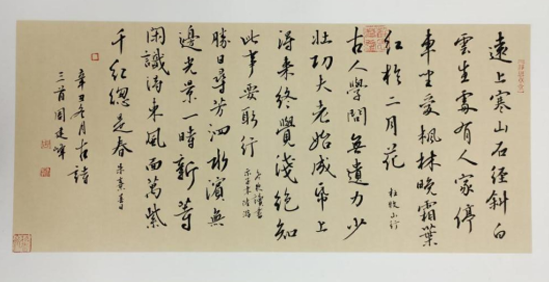 遠上寒山石徑斜白
雲生處有人家停
車坐愛楓林晚霜葉
紅於二月花 杜牧山行
古人學問無遺力少
壯功夫老始成帋上
得來終覺淺絕知
此事要躬行 冬夜讀書
示子聿陸游
勝日尋芳泗水濱無
邊光景一時新等
閑識得東風面萬紫
千紅總是春 朱熹春日
辛丑冬月古詩
三首周建峰